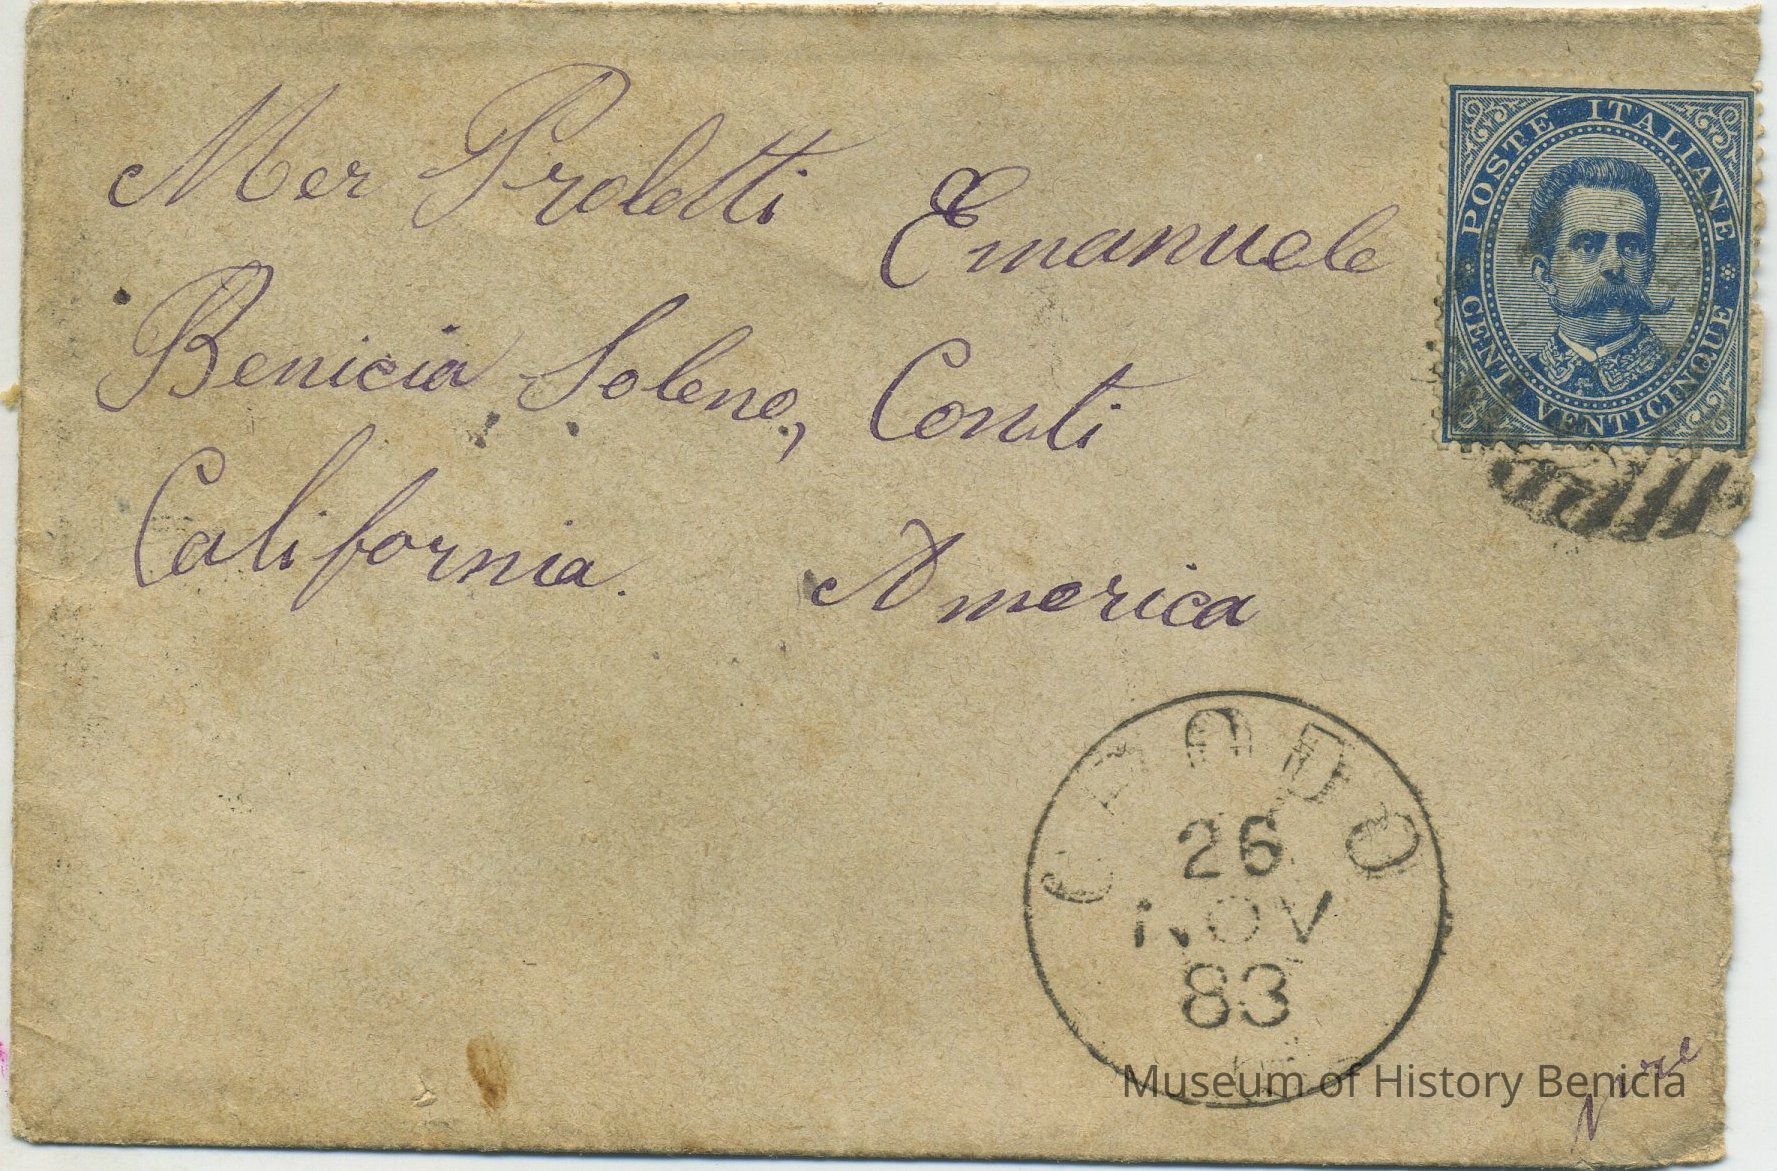 Mer Proletti Emanuele
Benicia Soleno, Conti
California. America
POSTE ITALIANE
CENT. VENTICINQUE
CRODO
26
NOV
83
Museum of History Benicia